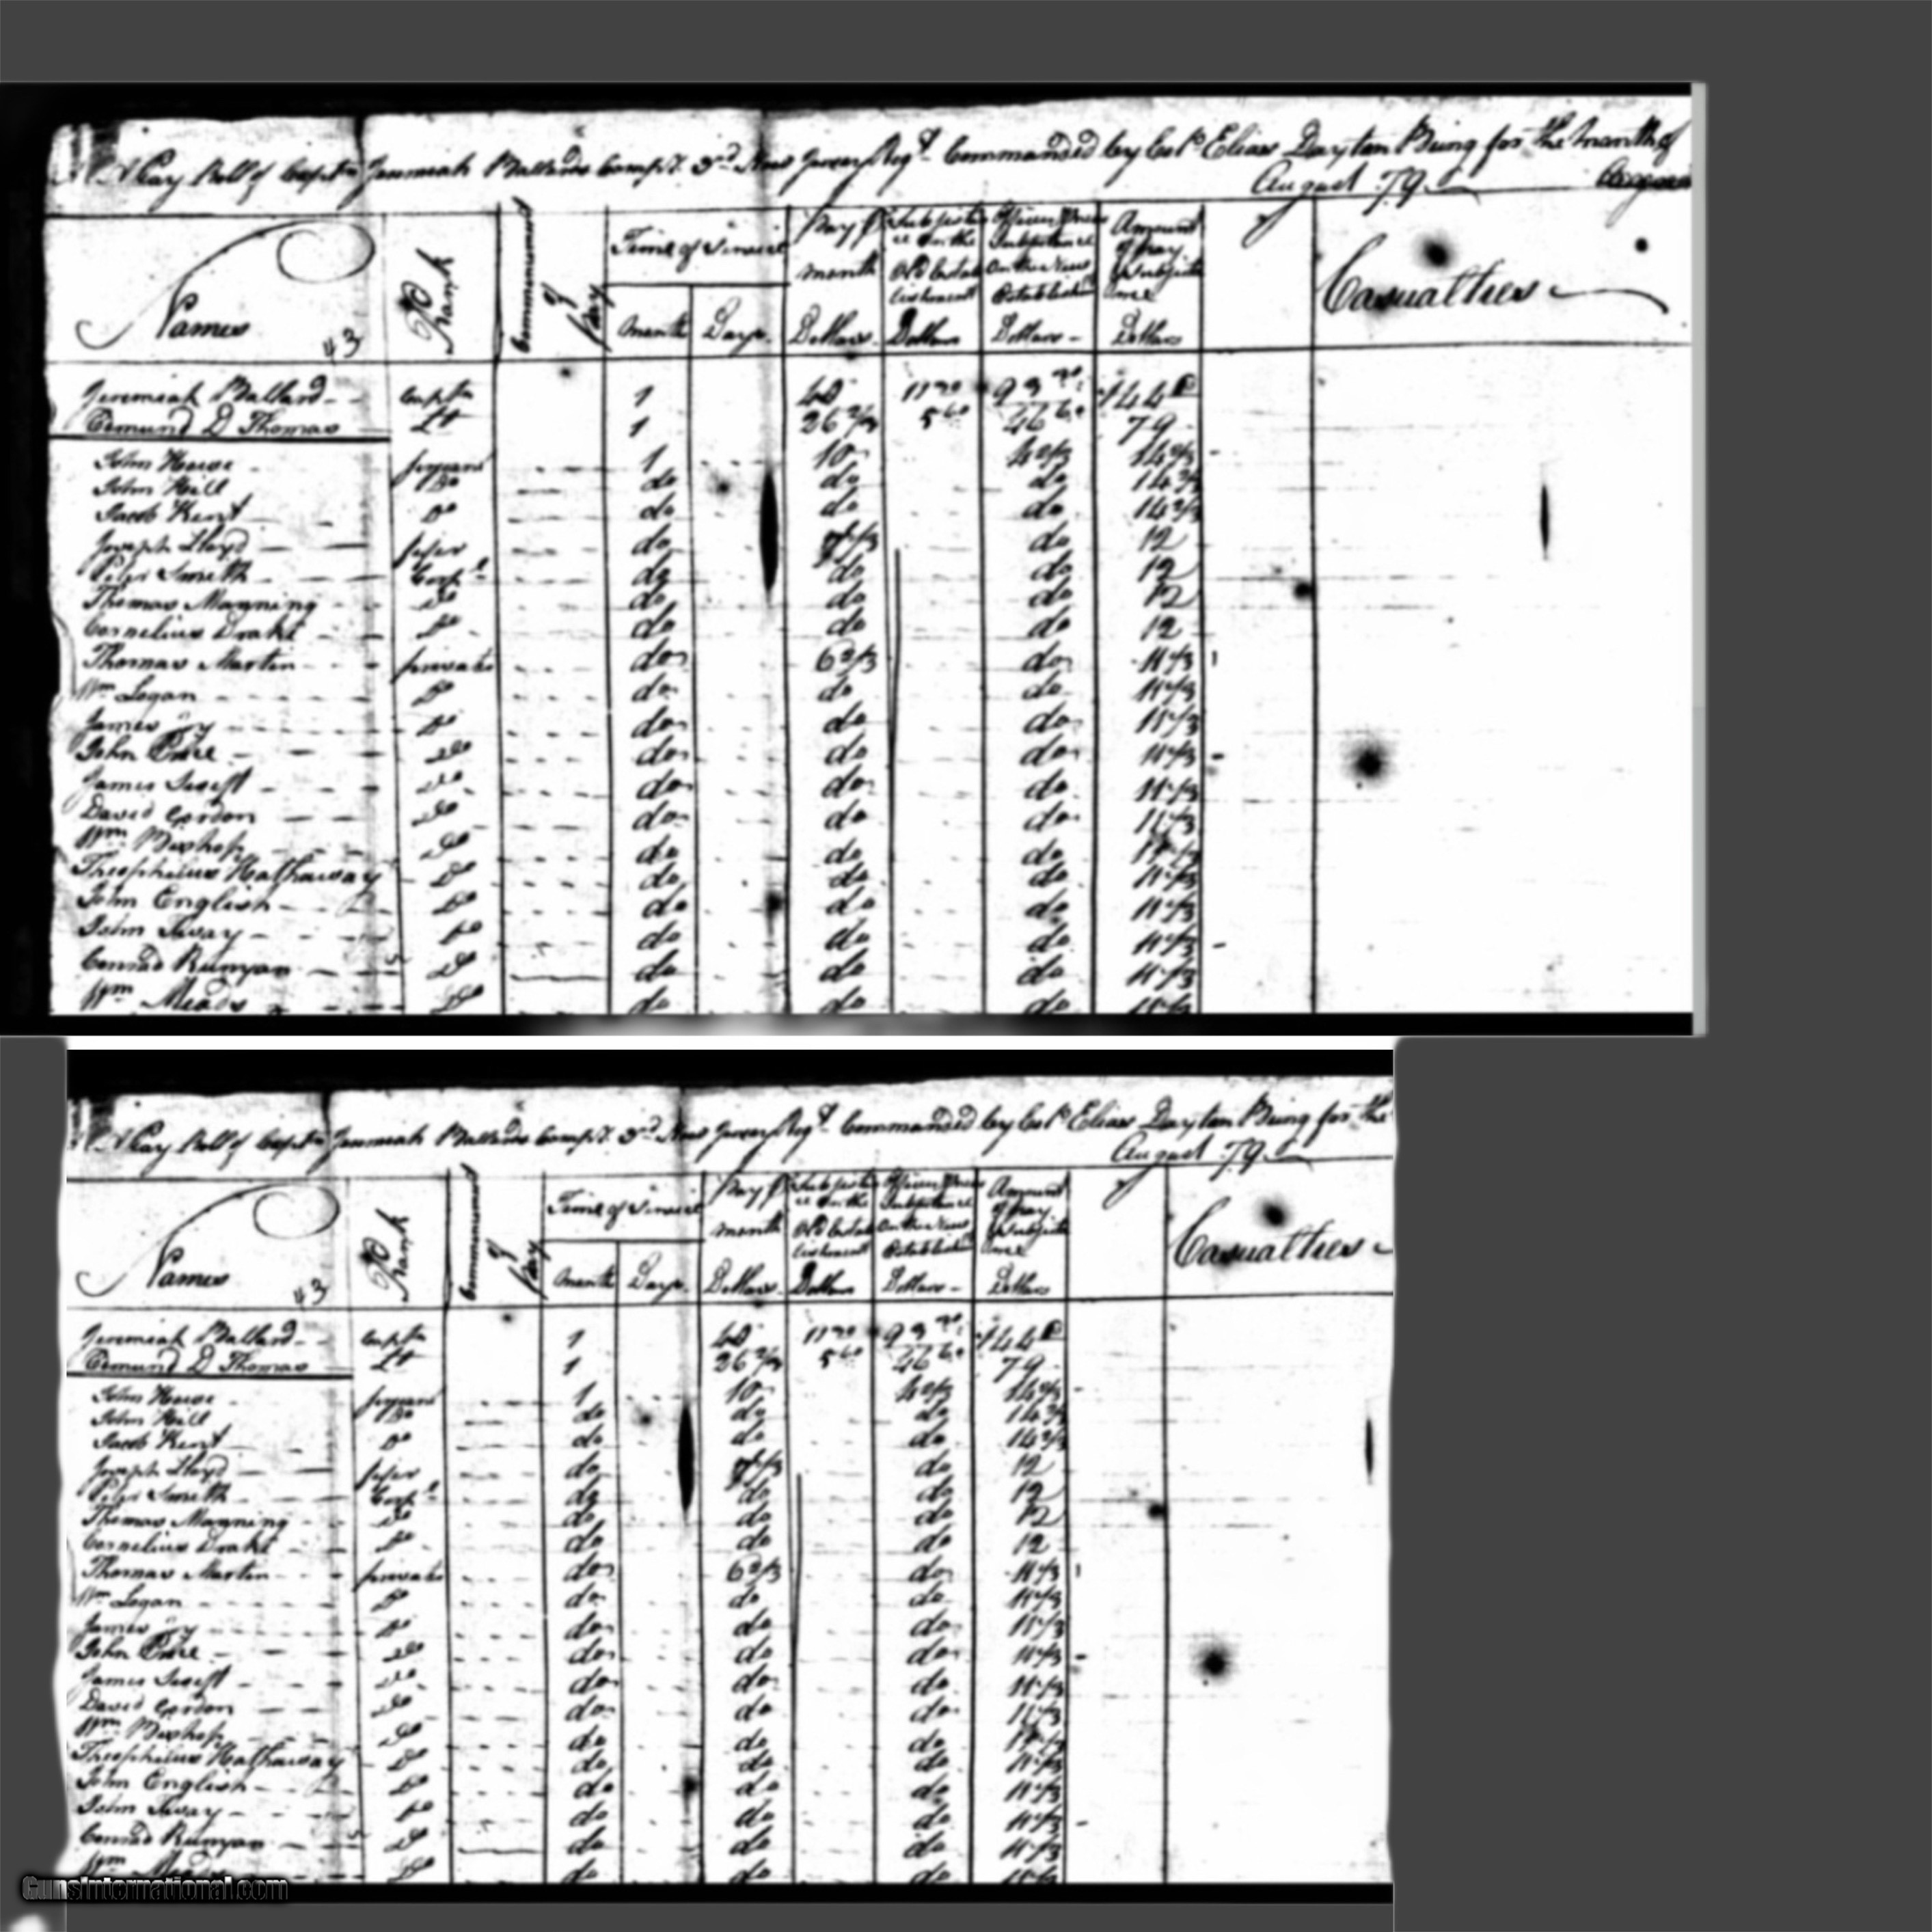 A Pay Roll of Captn Jeremiah Ballards Compy. 3rd New Jersey Regt. Commanded by Colo Elias Dayton Being for the month of
August 79
Names
43
Rank
Commencement of Pay
Time of Service
month Days
Pay month Dollars
Subsistance on the Old Establishment Dollars
Subsistance on the New Establishment Dollars
Amount of pay Dollars
Casualties
Jeremiah Ballard Captn 1 40 144
Edmund D Thomas Lt 1 26 2/3 79
John 1 10 14 2/3
John Hill Do do do do 14 2/3
Jacob Kent Do do do do 14 2/3
Joseph Lloyd fifer do 7 1/3 do 12
Peter Smith Corpl do do do 12
Thomas Manning Do do do do 12
Cornelius Drake Do do do do 12
Thomas Martin private do 6 2/3 do 11 1/3
Wm Logan Do do do do 11 1/3
James Do do do do 11 1/3
John Do do do do 11 1/3
James Swift Do do do do 11 1/3
David Gordon Do do do do 11 1/3
Wm Bishop Do do do do 11 1/3
Theophilus Hathaway Do do do do 11 1/3
John English Do do do do 11 1/3
John Do do do do 11 1/3
Conrad Runyan Do do do do 11 1/3
Wm Meads Do do do do
A Pay Roll of Captn Jeremiah Ballards Compy. 3rd New Jersey Regt. Commanded by Colo Elias Dayton Being for the
August 79
Names
43
Rank
Commencement of Pay
Time of Service
month Days
Pay month Dollars
Subsistance on the Old Establishment Dollars
Subsistance on the New Establishment Dollars
Amount of pay Dollars
Casualties
Jeremiah Ballard Captn 1 40 144
Edmund D Thomas Lt 1 26 2/3 79
John 1 10 14 2/3
John Hill Do do do do 14 2/3
Jacob Kent Do do do do 14 2/3
Joseph Lloyd fifer do 7 1/3 do 12
Peter Smith Corpl do do do 12
Thomas Manning Do do do do 12
Cornelius Drake Do do do do 12
Thomas Martin private do 6 2/3 do 11 1/3
Wm Logan Do do do do 11 1/3
James Do do do do 11 1/3
John Do do do do 11 1/3
James Swift Do do do do 11 1/3
David Gordon Do do do do 11 1/3
Wm Bishop Do do do do 11 1/3
Theophilus Hathaway Do do do do 11 1/3
John English Do do do do 11 1/3
John Do do do do 11 1/3
Conrad Runyan Do do do do 11 1/3
Wm Do do do do
GunsInternational.com